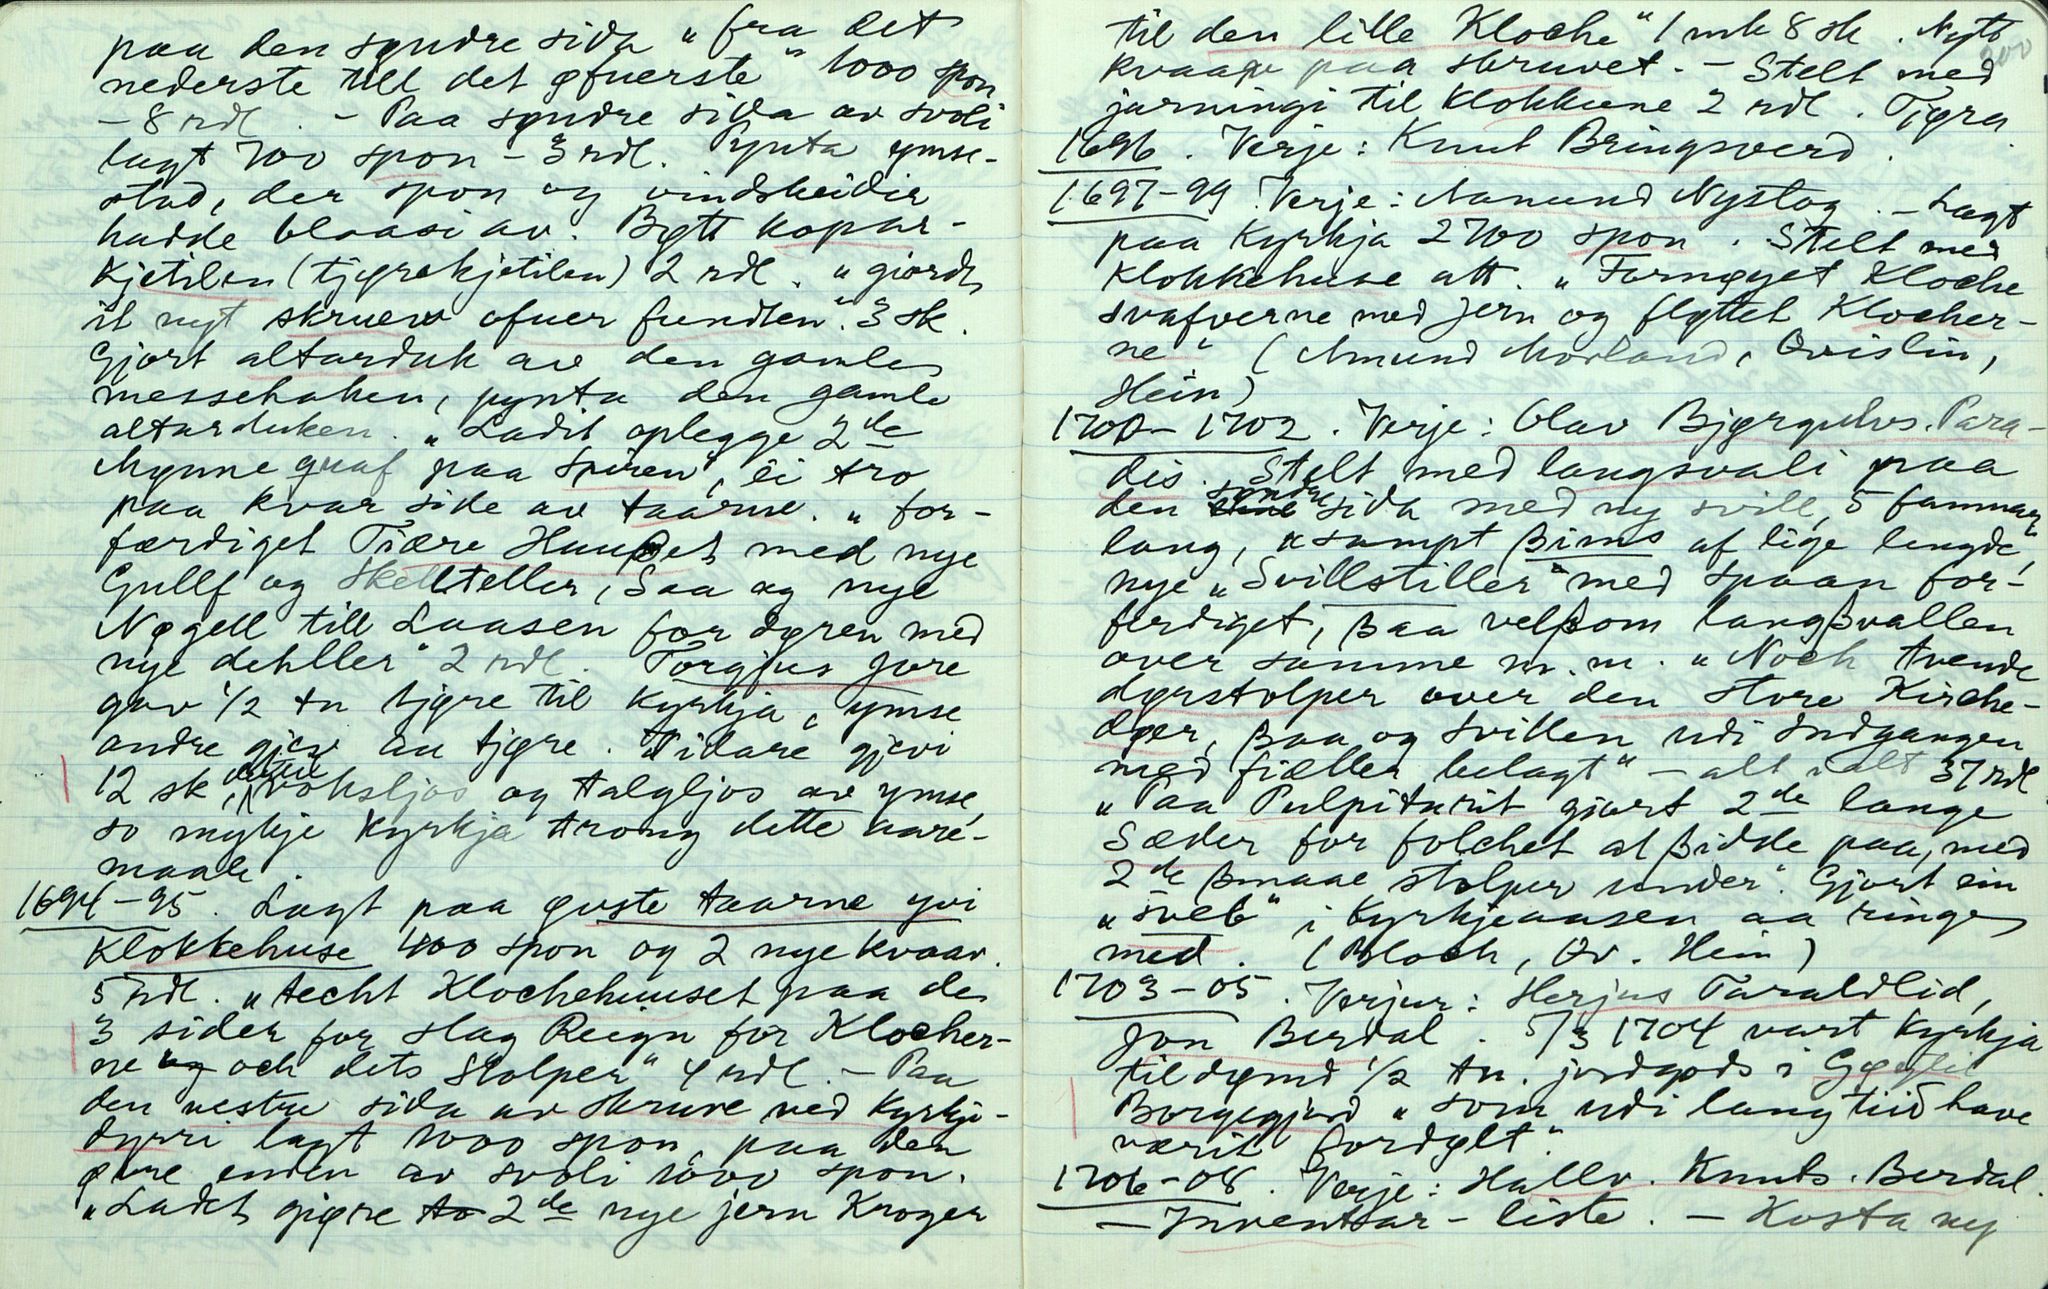 paa den syndre sida "fra det
nederste till det øfuerste" 1000 spon
- 8 rdl. - Paa syndre sida av svoli
lagt 700 spon - 3 rdl. Pynta ymse-
stad, der spon og vindskeidir
hadde blaasi av. Bytt kopar-
kjetilen (tjyrekjetilen) 2 rdl. "giordt
it nyt skruew ofuer fundten". 3 sk.
Gjort altarduk av den gamle
messehaken, pynta den gamle
altarduken. "Ladit oplegge 2de
Mynne guaf paa Spiren", ei tro
paa kvar side av taarne. "for-
færdiget Tiære Huuset med nye
Gullf og Skellteller, Saa og nye
Nøgell till Laasen for døren med
nye dehller" 2 rdl. Torgjus Jore
gav 1/2 tn tjøre til Kyrkja, ymse
andre gjev au tjøre. Vidare gjevi
12 sk, dertil voksljos og talgljos av ymse
so mykje Kyrkja trong dette aare-
maale.
1694-95. Lagt paa øvste taarne yvi
Klokkehuse 400 spon og 2 nye kvaar.
5 rdl. "techt Klochehuuset paa de
3 sider for slag Reign for Klocher-
ne og och dets Stolper" 4 rdl. - Paa
den vestre sida av skruve ved Kyrkje-
dyrri lagt 1000 spon, paa den
øvre enden av svoli 1000 spon.
"Ladet giøre to 2de nye jern Kroger
til den lille Kloche" 1 mk 8 sk. Nytt
200
kvaav paa skruvet. - Stelt med
jarningi til Klokkune 2 rdl. Tjøra.
1696. Verje: Knut Bringsverd.
1697-99. Verje: Aanund Nystog. - Lagt
paa Kyrkja 2700 spon. Stelt med
Klokkehuse att. "Fornøyet Kloche
svafverne med Jern og flyttet Klocher-
ne" (Amund Morland, Qvislin,
Hein)
1700-1702. Verje: Olav Bjørgulvs. Para-
dis. Stelt med langsvali paa
den syndre sida med ny svill, 5 famnar
lang, "sampt Bims af lige lengde",
nye "Svillstiller" med spaan for-
ferdiget, ßaa velßom langßvallen
over samme m.m. "Noch tvende
dørstolper over den store Kirche-
døer, ßaa og Svillen udi Indgangen
med fiæller belagt" - alt i alt 37 rdl
"Paa Pulpiturit giort 2de lange
Sæder for folchet at ßidde paa, med
2de ßmaae stolper under". Gjort ein
"sveb" i Kyrkjeaasen aa ringe
med. (Bloch, Qv. Hein)
1703-05. Verjur: Herjus Taraldlid,
Jon Berdal. 5/3 1704 vart Kyrkja
tildømd 1/2 tn. jordgods i Gøytil
Borgegjerd "som udi lang tiid have
værit fordølt."
1706-08. Verje: Hallv. Knuts. Berdal.
- Inventar-liste. - Kosta ny